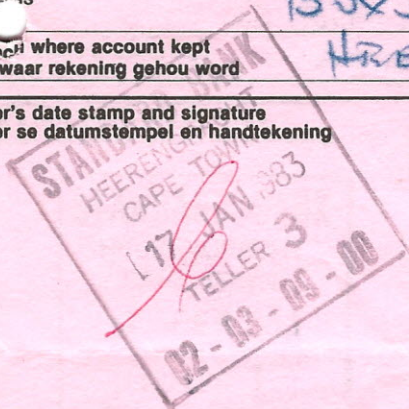 where account kept
waar rekening gehou word
r's date stamp and signature
er se datumstempel en handtekening
STANDARD BANK
HEERENGRACHT
CAPE TOWN
17 JAN 1983
TELLER 3
02-03-09-00